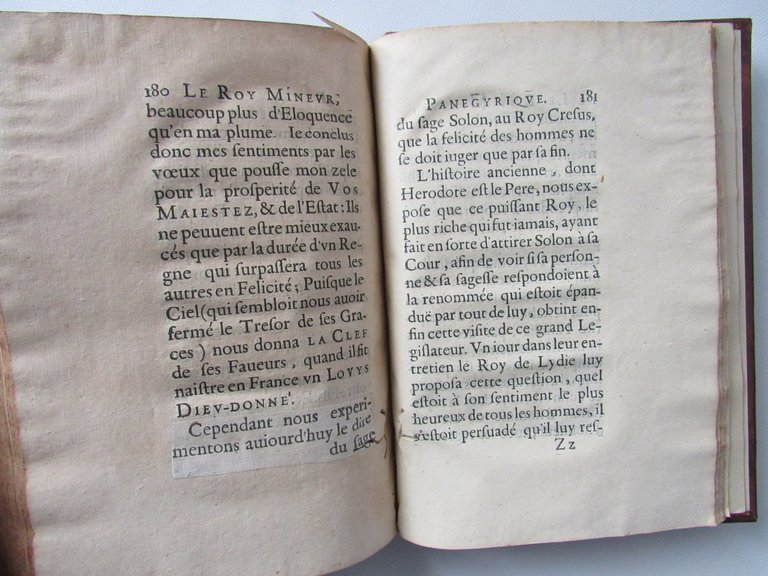 180 LE ROY MINEVR,
beaucoup plus d'Eloquence
qu'en ma plume. Ie conclus
donc mes ſentimens par les
vœux que pouſſe mon zele
pour la proſperité de VOS
MAIESTEZ, & de l'Eſtat: Ils
ne peuuent eſtre mieux exau-
cés que par la durée d'vn Re-
gne qui ſurpaſſera tous les
autres en Felicité; Puiſque le
Ciel (qui ſembloit nous auoir
fermé le Treſor de ſes Gra-
ces) nous donna LA CLEF
de ſes Faueurs, quand il fit
naiſtre en France vn LOVYS
DIEV-DONNE'.
Cependant nous experi-
mentons auiourd'huy le dire
du ſage
PANEGYRIQVE. 181
du ſage Solon, au Roy Creſus,
que la felicité des hommes ne
ſe doit iuger que par ſa fin.
L'hiſtoire ancienne, dont
Herodote eſt le Pere, nous ex-
poſe que ce puiſſant Roy, le
plus riche qui fut iamais, ayant
fait en ſorte d'attirer Solon à ſa
Cour, afin de voir ſi ſa perſon-
ne & ſa ſageſſe reſpondoient à
la renommée qui eſtoit épan-
duë par tout de luy, obtint en-
fin cette viſite de ce grand Le-
giſlateur. Vn iour dans leur en-
tretien le Roy de Lydie luy
propoſa cette queſtion, quel
eſtoit à ſon ſentiment le plus
heureux de tous les hommes, il
s'eſtoit perſuadé qu'il luy reſ-
Zz